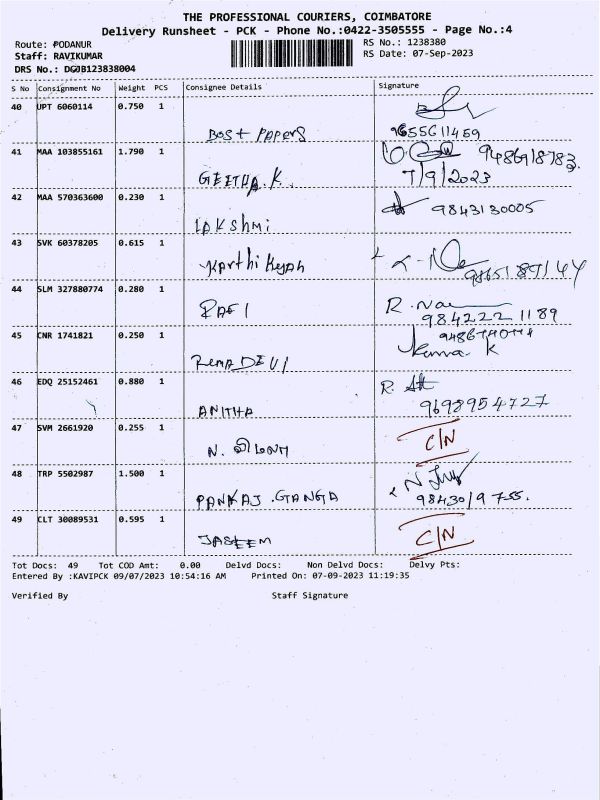 THE PROFESSIONAL COURIERS, COIMBATORE
Delivery Runsheet - PCK - Phone No.:0422-3505555 - Page No.:4
Route: PODANUR
RS No.: 1238380
Staff: RAVIKUMAR
RS Date: 07-Sep-2023
DRS No.: DGJB123838004
S No Consignment No Weight PCS Consignee Details Signature
40 UPT 6060114 0.750 1
BOST PAPERS
41 MAA 103855161 1.790 1
GEETHA.K. 7/9/2023
42 MAA 570363600 0.230 1 9843130005
LAKSHMI
43 SVK 60378205 0.615 1
Karthi Keyah
44 SLM 327880774 0.280 1
RAFI 984222 1189
45 CNR 1741821 0.250 1
REMA DEVI K
46 EDQ 25152461 0.880 1 R.
ANITHA 9698954727
47 SVM 2661920 0.255 1 C/N
N. விமலா
48 TRP 5502987 1.500 1
PANKAJ .GANGA 9843019755.
49 CLT 30089531 0.595 1 C/N
JASEEM
Tot Docs: 49 Tot COD Amt: 0.00 Delvd Docs: Non Delvd Docs: Delvy Pts:
Entered By :KAVIPCK 09/07/2023 10:54:16 AM Printed On: 07-09-2023 11:19:35
Verified By Staff Signature